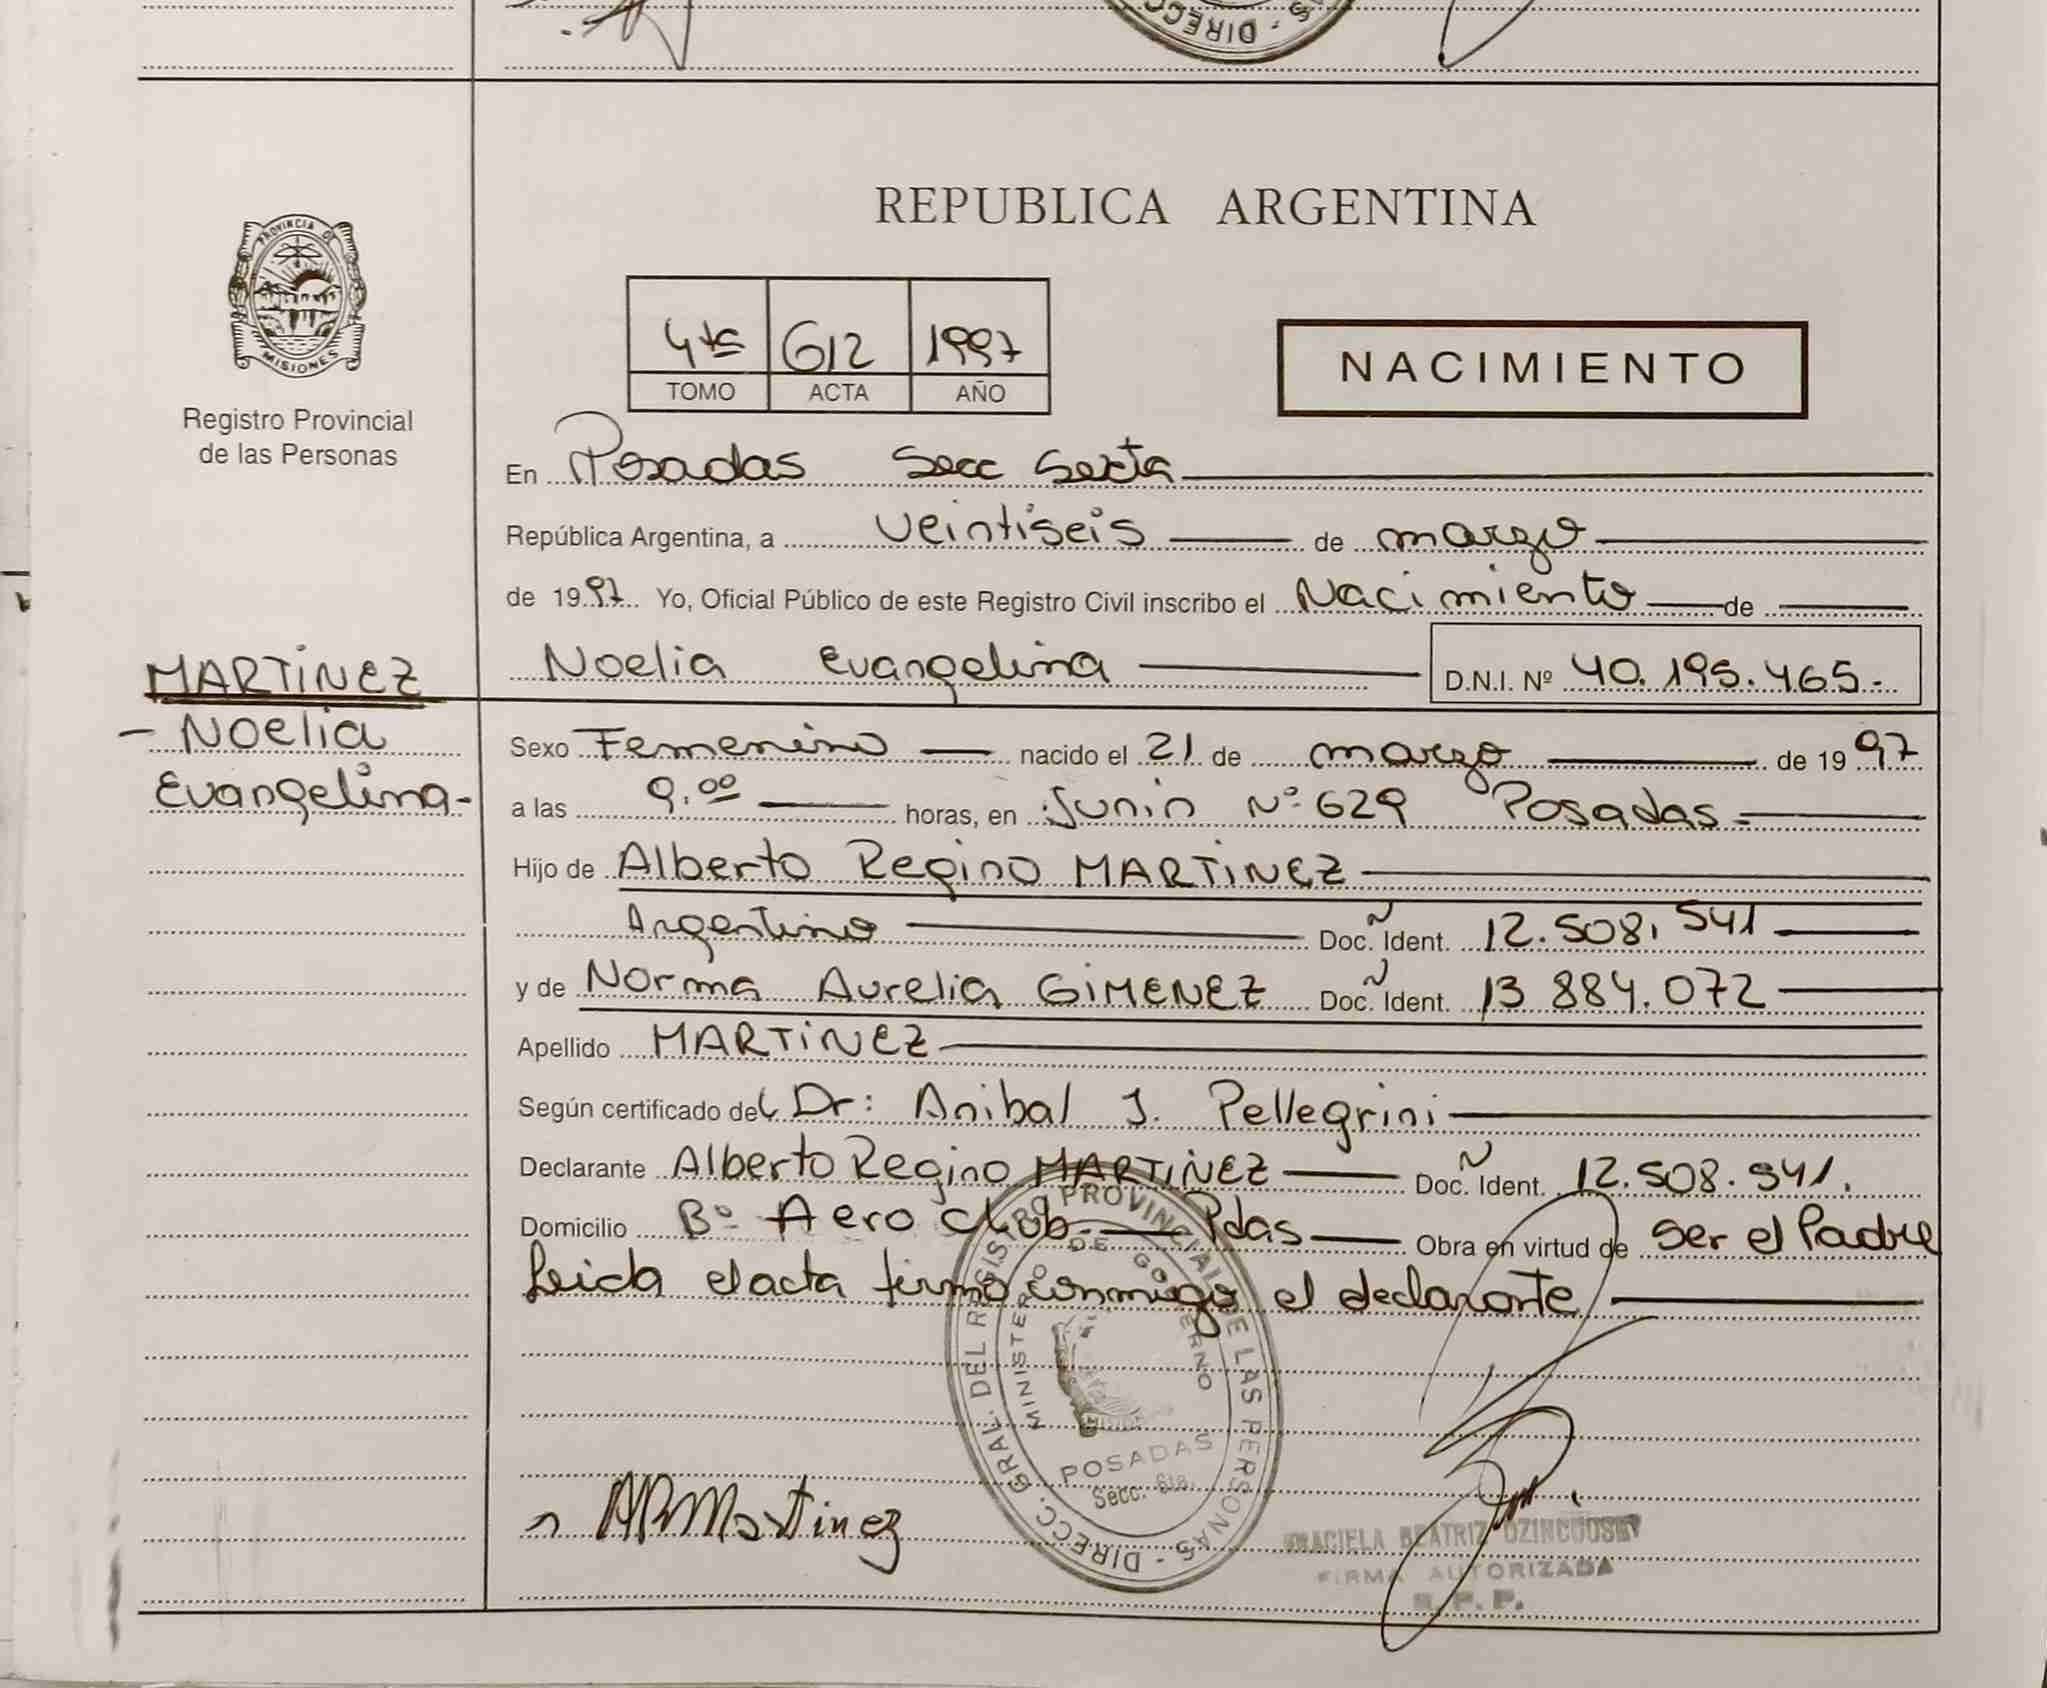 DIRECC
AS
REPUBLICA ARGENTINA
PROVINCIA DE
MISIONES
Registro Provincial
de las Personas
4to 612 1997
TOMO ACTA AÑO
NACIMIENTO
En Posadas Secc Sexta
República Argentina, a veintiseis de marzo
de 1997 Yo, Oficial Público de este Registro Civil inscribo el Nacimiento de
Noelia Evangelina D.N.I. Nº 40.195.465.-
MARTINEZ
- Noelia
Evangelina-
Sexo Femenino nacido el 21 de marzo de 1997
a las 9.00 horas, en Junin Nº 629 Posadas
Hijo de Alberto Regino MARTINEZ
Argentino Doc. Ñ Ident. 12.508.541
y de Norma Aurelia GIMENEZ Doc. Ñ Ident. 13 884.072
Apellido MARTINEZ
Según certificado del Dr: Anibal J. Pellegrini
Declarante Alberto Regino MARTINEZ Doc. Ñ Ident. 12.508.541.
Domicilio Bº Aero Club Pdas Obra en virtud de ser el Padre
Leida el acta firma conmigo el declarante
DIRECC. GRAL. DEL REGISTRO PROVINCIAL DE LAS PERSONAS -
MINISTERIO DE GOBIERNO
POSADAS
Secc. 6ta.
ARMartinez
GRACIELA BEATRIZ
FIRMA AUTORIZADA
R. P. P.